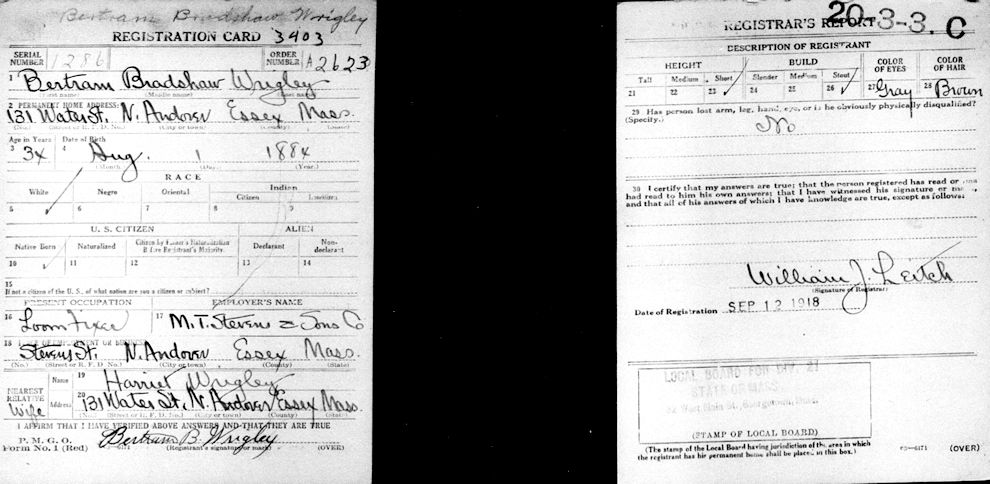 Bertram Bradshaw Wrigley
REGISTRATION CARD 3403
SERIAL NUMBER 1286 ORDER NUMBER A2623
1 Bertram Bradshaw Wrigley
(First name) (Middle name) (Last name)
2 PERMANENT HOME ADDRESS:
131 Water St. N. Andover Essex Mass.
(No.) (Street or R. F. D. No.) (City or town) (County) (State)
Age in Years Date of Birth
3 34 4 Aug. 1 1884
(Month) (Day) (Year)
RACE
White Negro Oriental Indian
Citizen Noncitizen
5 ✓ 6 7 8 9
U. S. CITIZEN ALIEN
Native Born Naturalized Citizen by Father's Naturalization Before Registrant's Majority. Declarant Non-declarant
10 ✓ 11 12 13 14
15
If not a citizen of the U. S., of what nation are you a citizen or subject?
PRESENT OCCUPATION EMPLOYER'S NAME
16 Loom Fixer 17 M. T. Stevens & Sons Co
18 PLACE OF EMPLOYMENT OR BUSINESS:
Stevens St. N. Andover Essex Mass.
(No.) (Street or R. F. D. No.) (City or town) (County) (State)
NEAREST RELATIVE Name 19 Harriet Wrigley
Wife Address 20 131 Water St. N. Andover Essex Mass.
(No.) (Street or R. F. D. No.) (City or town) (County) (State)
I AFFIRM THAT I HAVE VERIFIED ABOVE ANSWERS AND THAT THEY ARE TRUE
P. M. G. O.
Form No. 1 (Red) Bertram B. Wrigley
(Registrant's signature or mark) (OVER)
20-3-3. C
REGISTRAR'S REPORT
DESCRIPTION OF REGISTRANT
HEIGHT BUILD COLOR OF EYES COLOR OF HAIR
Tall Medium Short Slender Medium Stout
21 22 23 ✓ 24 25 26 ✓ 27 Gray 28 Brown
29 Has person lost arm, leg, hand, eye, or is he obviously physically disqualified?
(Specify.) No
30 I certify that my answers are true; that the person registered has read or has
had read to him his own answers; that I have witnessed his signature or mark,
and that all of his answers of which I have knowledge are true, except as follows:
William J. Leitch
(Signature of Registrar)
Date of Registration SEP 12 1918
LOCAL BOARD FOR DIV. 21
STATE OF MASS.
Georgetown, Mass.
(STAMP OF LOCAL BOARD)
(The stamp of the Local Board having jurisdiction of the area in which
the registrant has his permanent home shall be placed in this box.)
(OVER)